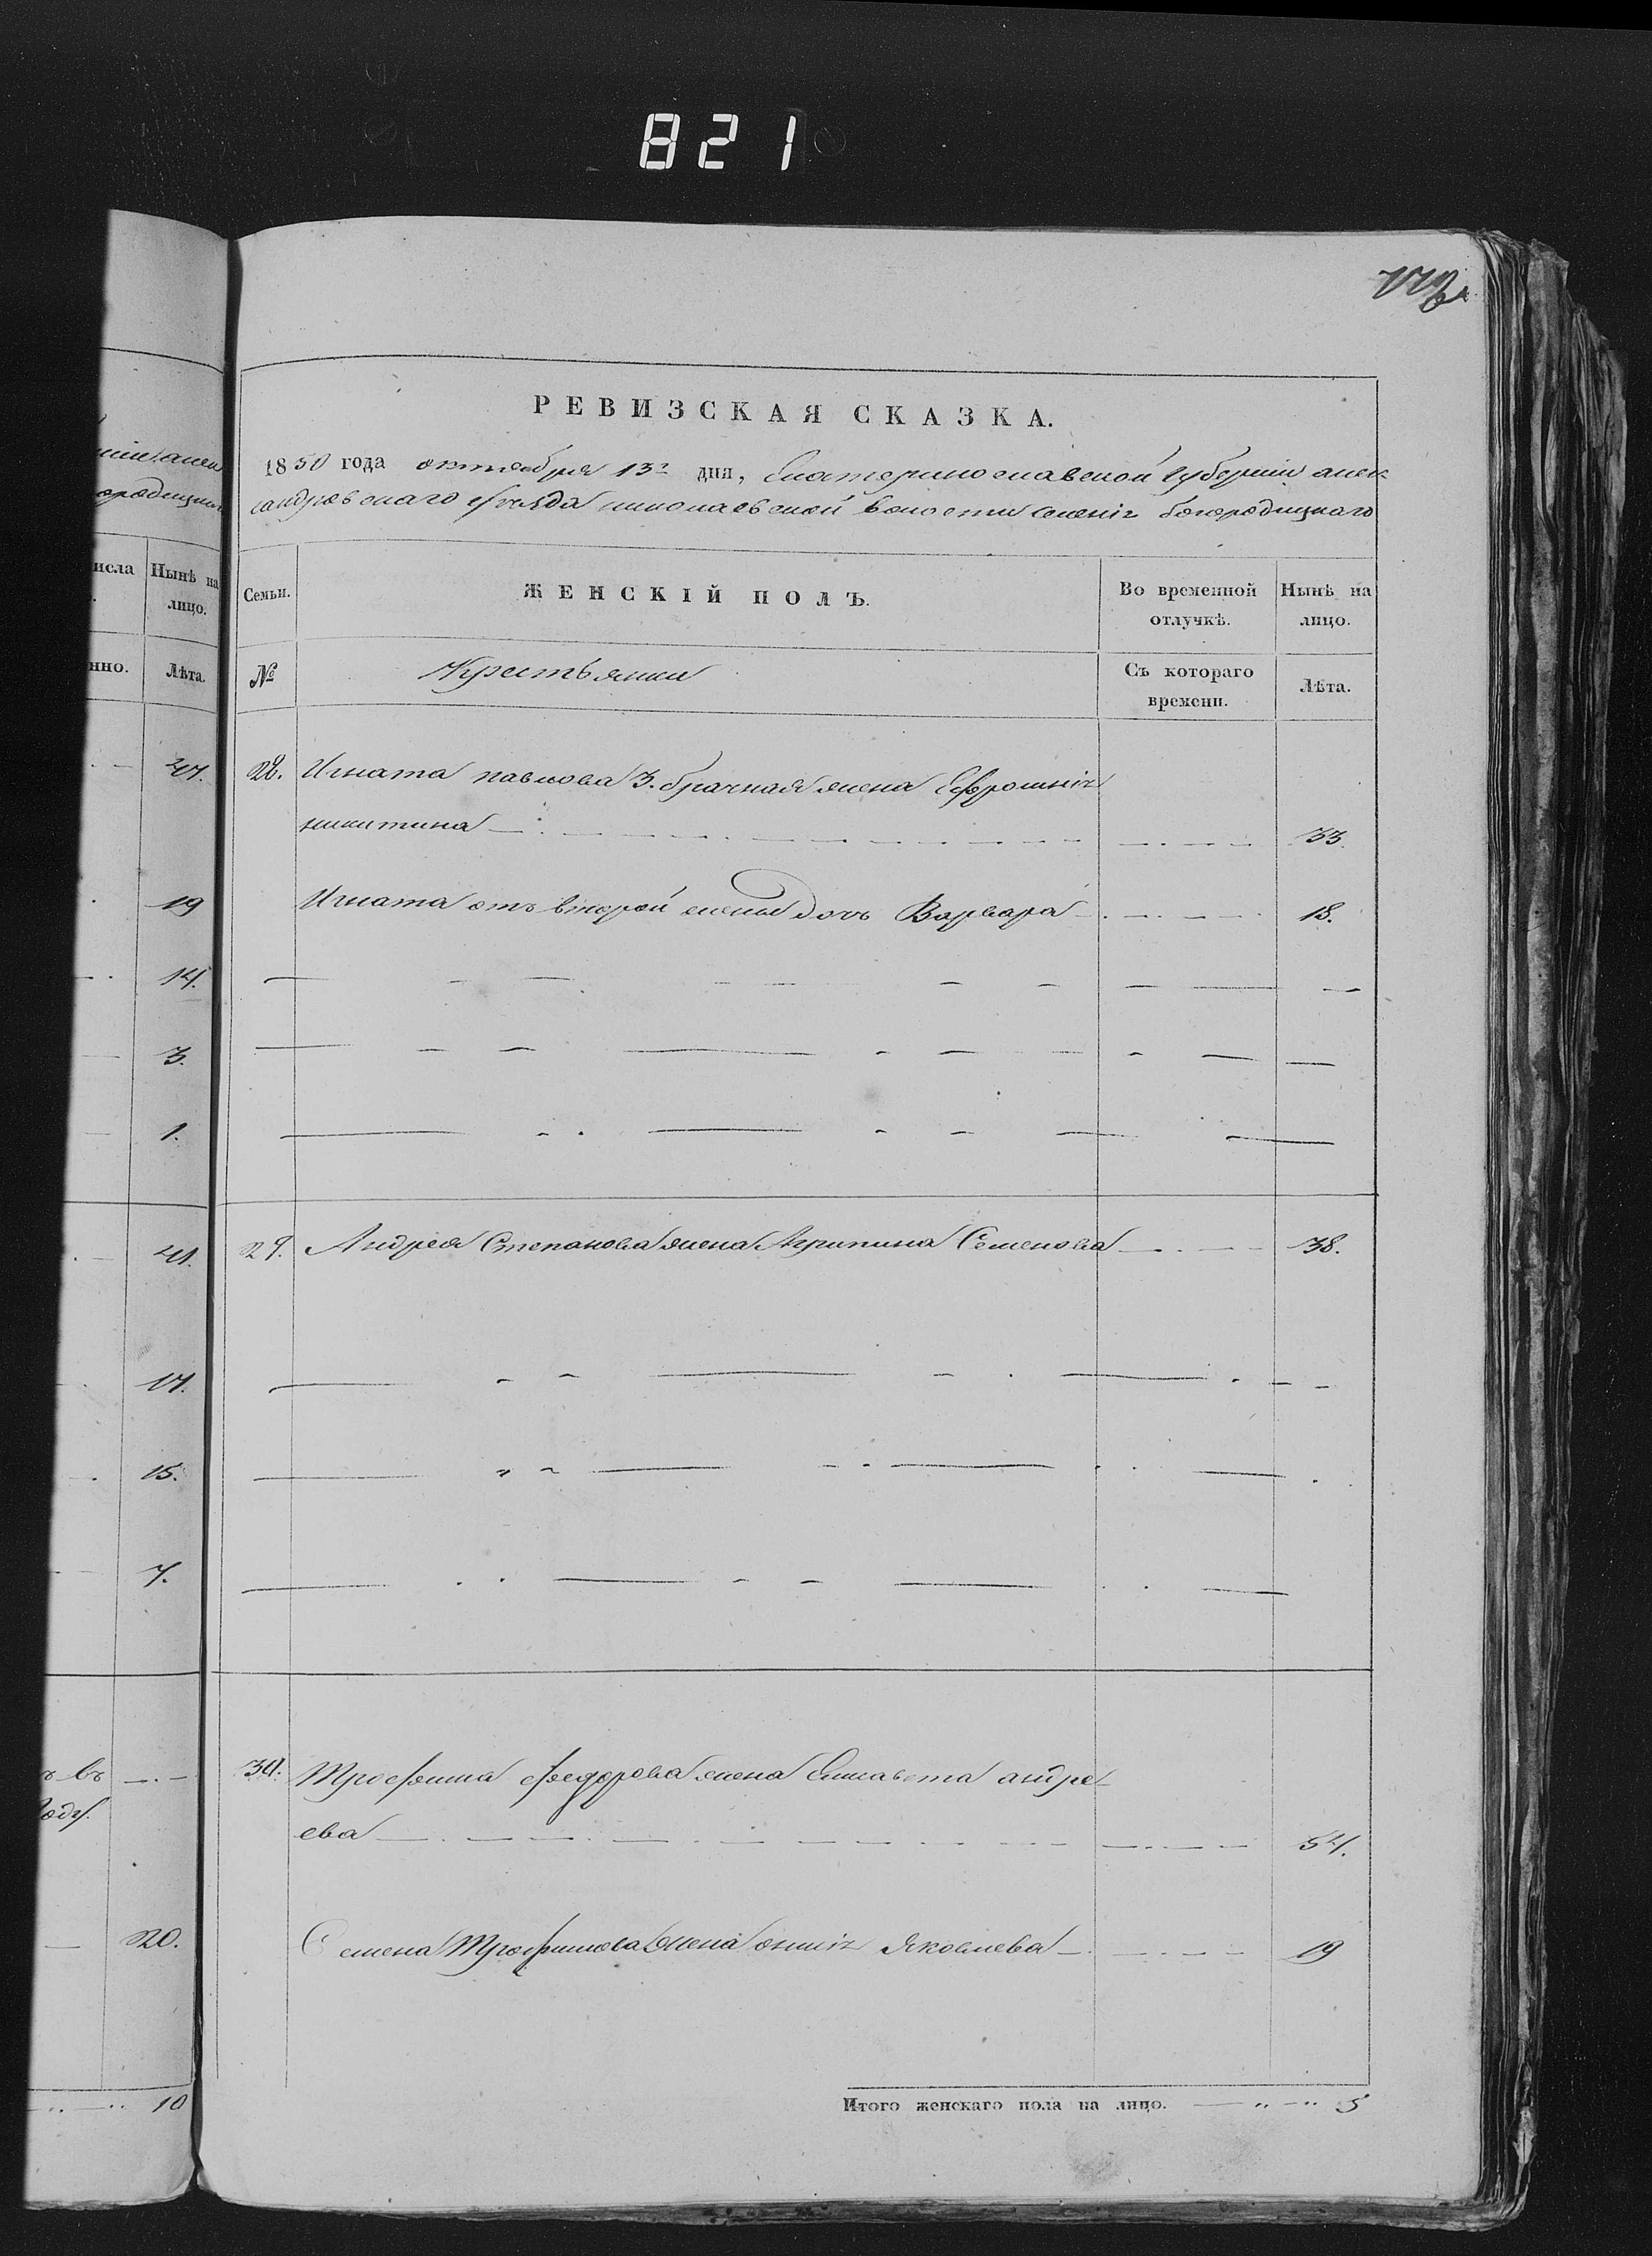 821
РЕВИЗСКАЯ СКАЗКА.
1850 года октября 13го дня, Екатеринославской губерніи алек-
сандровскаго уѣзда николаевской волости селенія богородицкаго
исла
Нынѣ на
лицо.
Семьи.
ЖЕНСКІЙ ПОЛЪ.
Во временной
отлучкѣ.
Нынѣ на
лицо.
нно.
Лѣта.
№
Крестьянки
Съ котораго
времени.
Лѣта.
47.
28. Игната павлова 3. брачная жена Ефросинія
никитина 33.
19
Игната отъ второй жены дочь Варвара 18.
14.
3.
1.
41.
29. Андрея Степанова жена Агрипина Семенова 38.
17.
15.
7.
ъ въ
30. Трофима федорова жена Елисавета андре-
году.
ева 54.
20.
Семена Трофимова жена Яковлева 19
10
Итого женскаго пола на лицо. 5